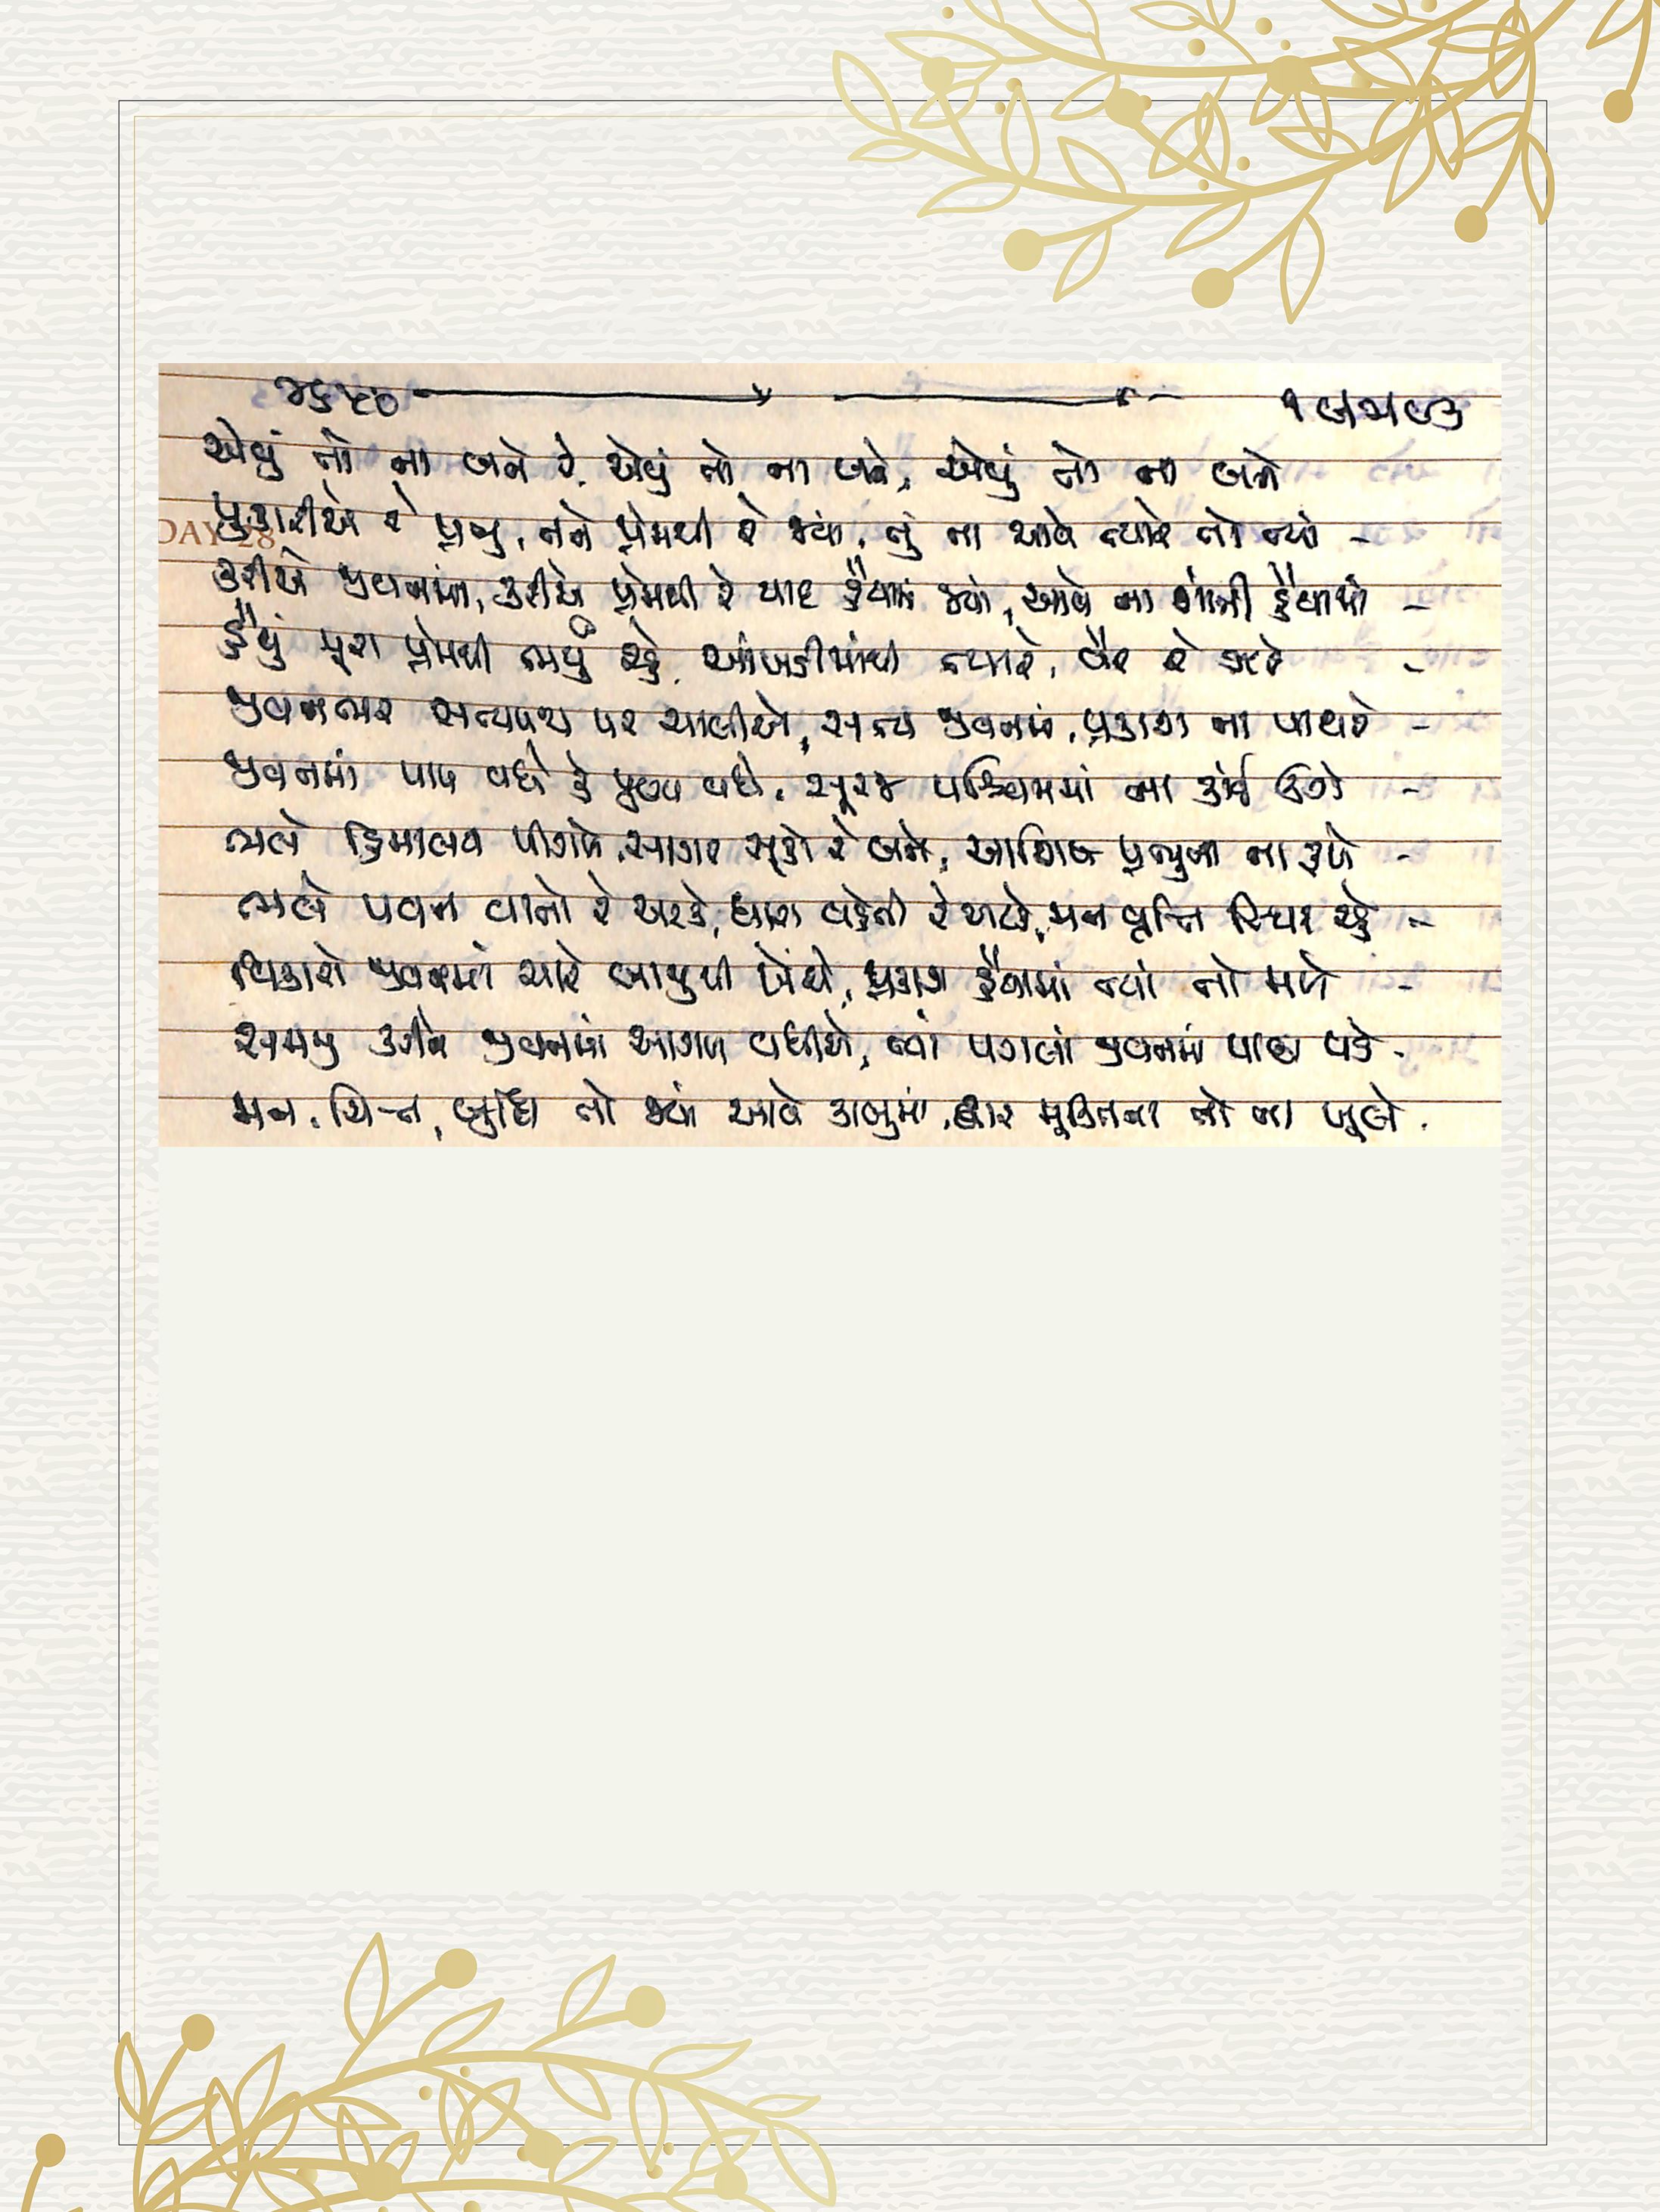 એવું તો ના બને રે, એવું તો ના બને, એવું તો ના બને
પુકારીએ રે પ્રભુ, તને પ્રેમથી રે જ્યાં, તું ના આવે ત્યારે તો ત્યાં -
DAY 28
કરીએ જીવનમાં, કરીએ પ્રેમથી રે યાદ હૈયામાં જ્યાં, આવે ના શાંતિ હૈયામાં -
હૈયું પૂરા પ્રેમથી ભર્યું રહે, આંખડીમાંથી ત્યારે, વૈર રે ઝરે -
જીવનભર સત્યપથ પર ચાલીએ, સત્ય જીવનમાં, પ્રકાશ ના પાથરે -
જીવનમાં પાપ વધે કે પુણ્ય વધે, સૂરજ પશ્ચિમમાં ના કાંઈ ઉગે -
ભલે હિમાલય પીગળે, સાગર સૂકો રે બને, આશિષ પ્રભુના ના રૂઠે -
ભલે પવન વાતો રે અટકે, ધારા વહેતી રે અટકે, મન વૃત્તિ સ્થિર રહે -
વિકારો જીવનમાં ચારે બાજુથી ખેંચે, પ્રકાશ હૈયામાં ત્યાં તો મળે -
સમજી કરીને જીવનમાં આગળ વધીએ, ત્યાં પગલાં જીવનમાં પાછા પડે -
મન, ચિત્ત, બુદ્ધિ તો જ્યાં આવે કાબુમાં, દ્વાર મુક્તિના તો ના ખૂલે.